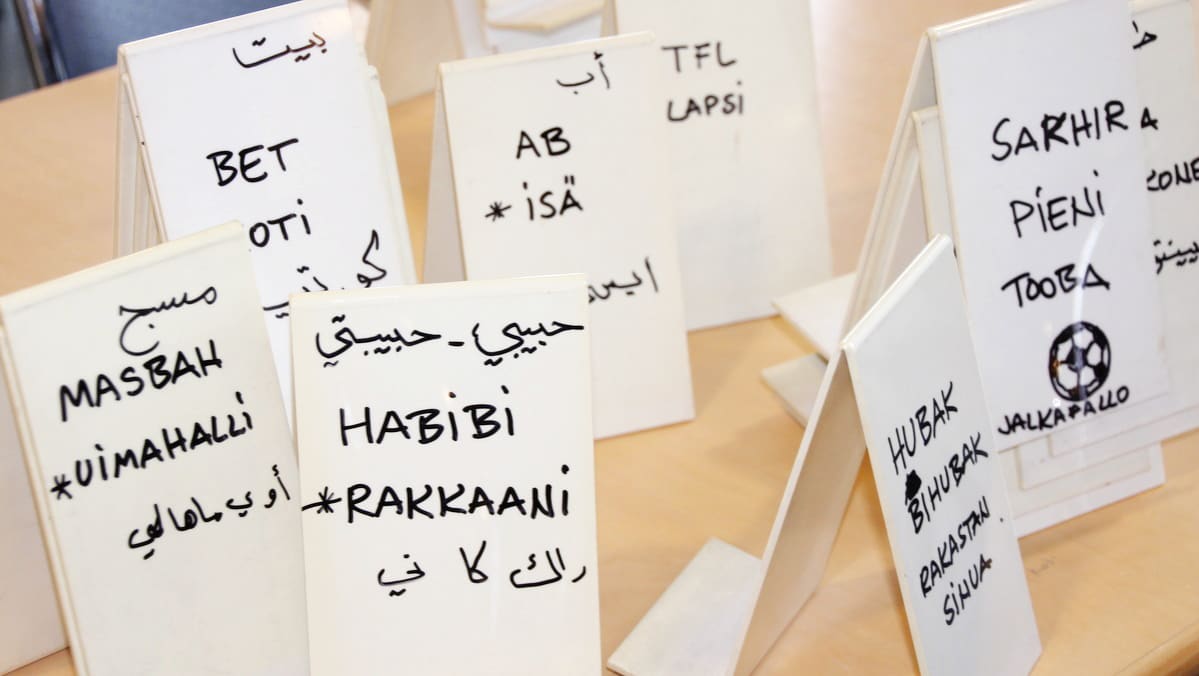 بيت
BET
OTI
كوتي
أب
AB
* ISÄ
TFL
LAPSI
SARHIR
PIENI
TOOBA
JALKAPALLO
A
KONE
مسبح
MASBAH
*UIMAHALLI
أوي ماهالي
حبيبي - حبيبتي
HABIBI
*RAKKAANI
راك كا ني
HUBAK
BIHUBAK
RAKASTAN
SINUA